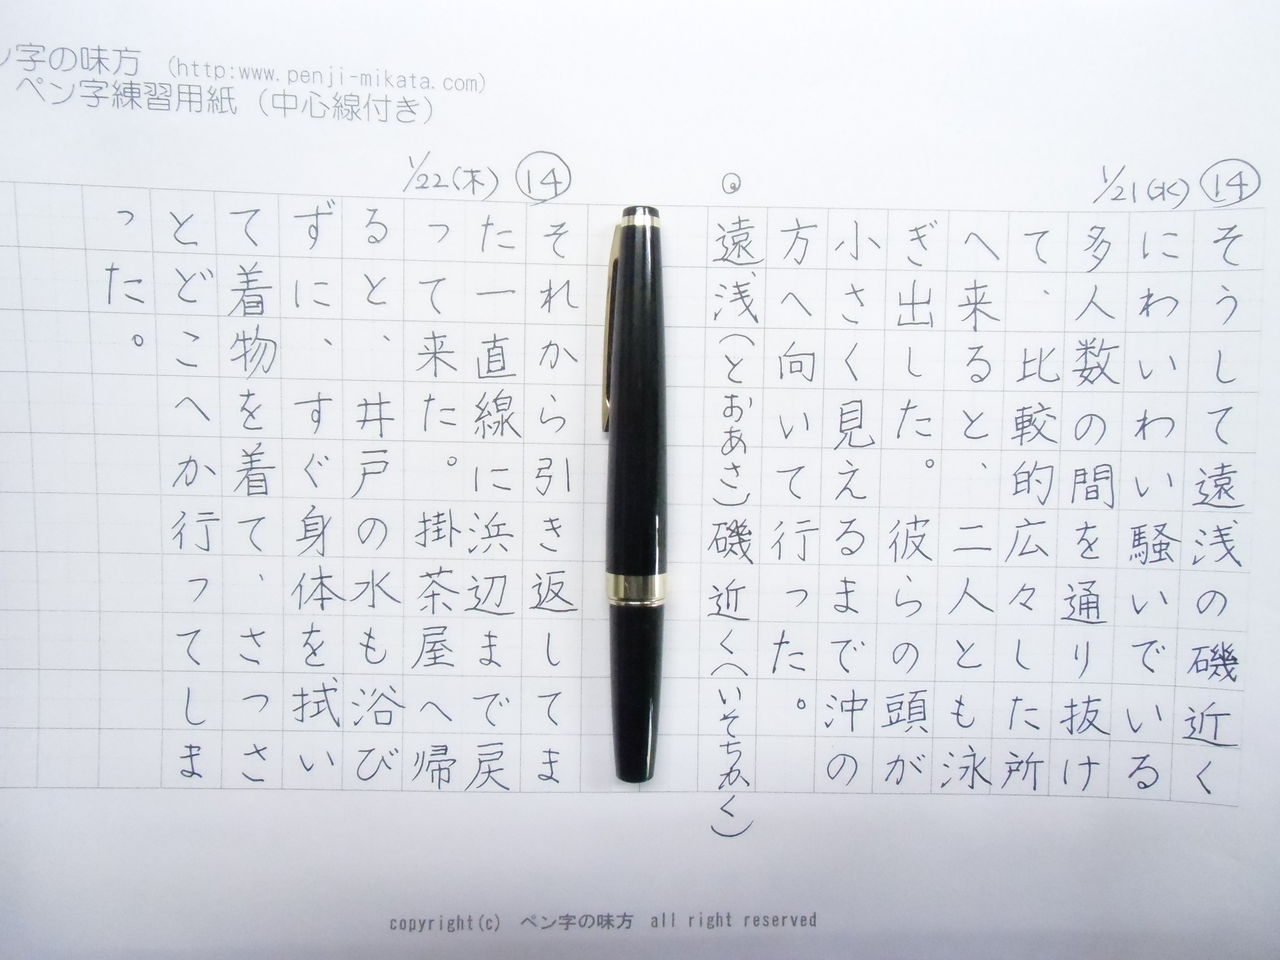 ン字の味方 (http:www.penji-mikata.com)
ペン字練習用紙（中心線付き）
1/21(水) ⑭
そうして遠浅の磯近く
にわいわい騒いでいる
多人数の間を通り抜け
て、比較的広々した所
へ来ると、二人とも泳
ぎ出した。彼らの頭が
小さく見えるまで沖の
方へ向いて行った。
遠浅(とおあさ)磯近く(いそちかく)
1/22(木) ⑭
それから引き返してま
た一直線に浜辺まで戻
って来た。掛茶屋へ帰
ると、井戸の水も浴び
ずに、すぐ身体を拭い
て着物を着て、さっさ
とどこへか行ってしま
った。
copyright(c) ペン字の味方 all right reserved